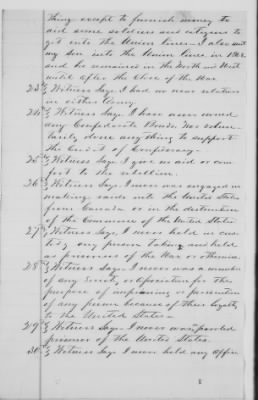 thing except to furnish money to
aid some soldiers and citizens to
get into the Union lines - I also sent
my Son into the Union lines in 1862
and he remained in the North and West
until after the Close of the War
23rd Witness Says. I had no near relatives
in either Army.
24th Witness Say. I have never owned
any Confederate Bonds, nor volun-
tarily done any thing to support
the Credit of Confederacy.
25th Witness Says I gave no aid or com-
fort to the rebellion.
26th Witness Says. I never was engaged in
making raids into the United States
from Canada or in the destruction
of the Commerce of the United States
27th Witness Say, I never held in cus-
tody any person taking and held
as prisoners of the War or otherwise.
28th Witness Say. I never was a member
of any Society or for the
purpose of imprisoning or persecution
of any person because of their loyalty
to the United States -
29th Witness Says - I never was paroled
prisoner of the United States.
30th Witness Say I never held any office